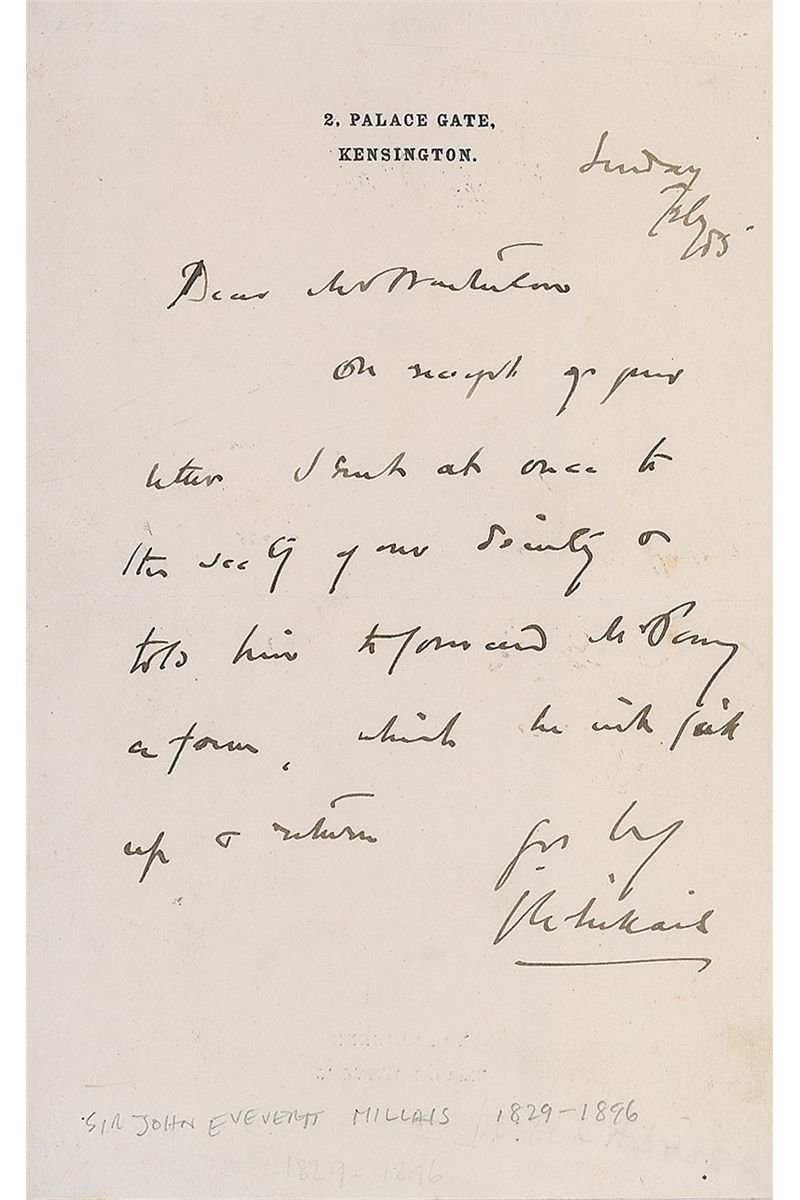 2, PALACE GATE,
KENSINGTON.
Sunday
Feby/85
Dear Mr
On receipt of your
letter I sent at once to
the secty of our Society &
told him to forward Mr
a form, which he will fill
up & return
yrs try
J E Millais
SIR JOHN EVEVERTT MILLAIS 1829-1896
1829-1896